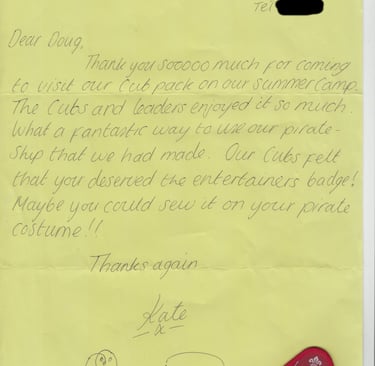 Tel
Dear Doug,
Thank you sooooo much for coming
to visit our Cub pack on our summer camp.
The Cubs and leaders enjoyed it so much.
What a fantastic way to use our pirate-
ship that we had made. Our Cubs felt
that you deserved the entertainers badge!
Maybe you could sew it on your pirate
costume!!
Thanks again
Kate
x